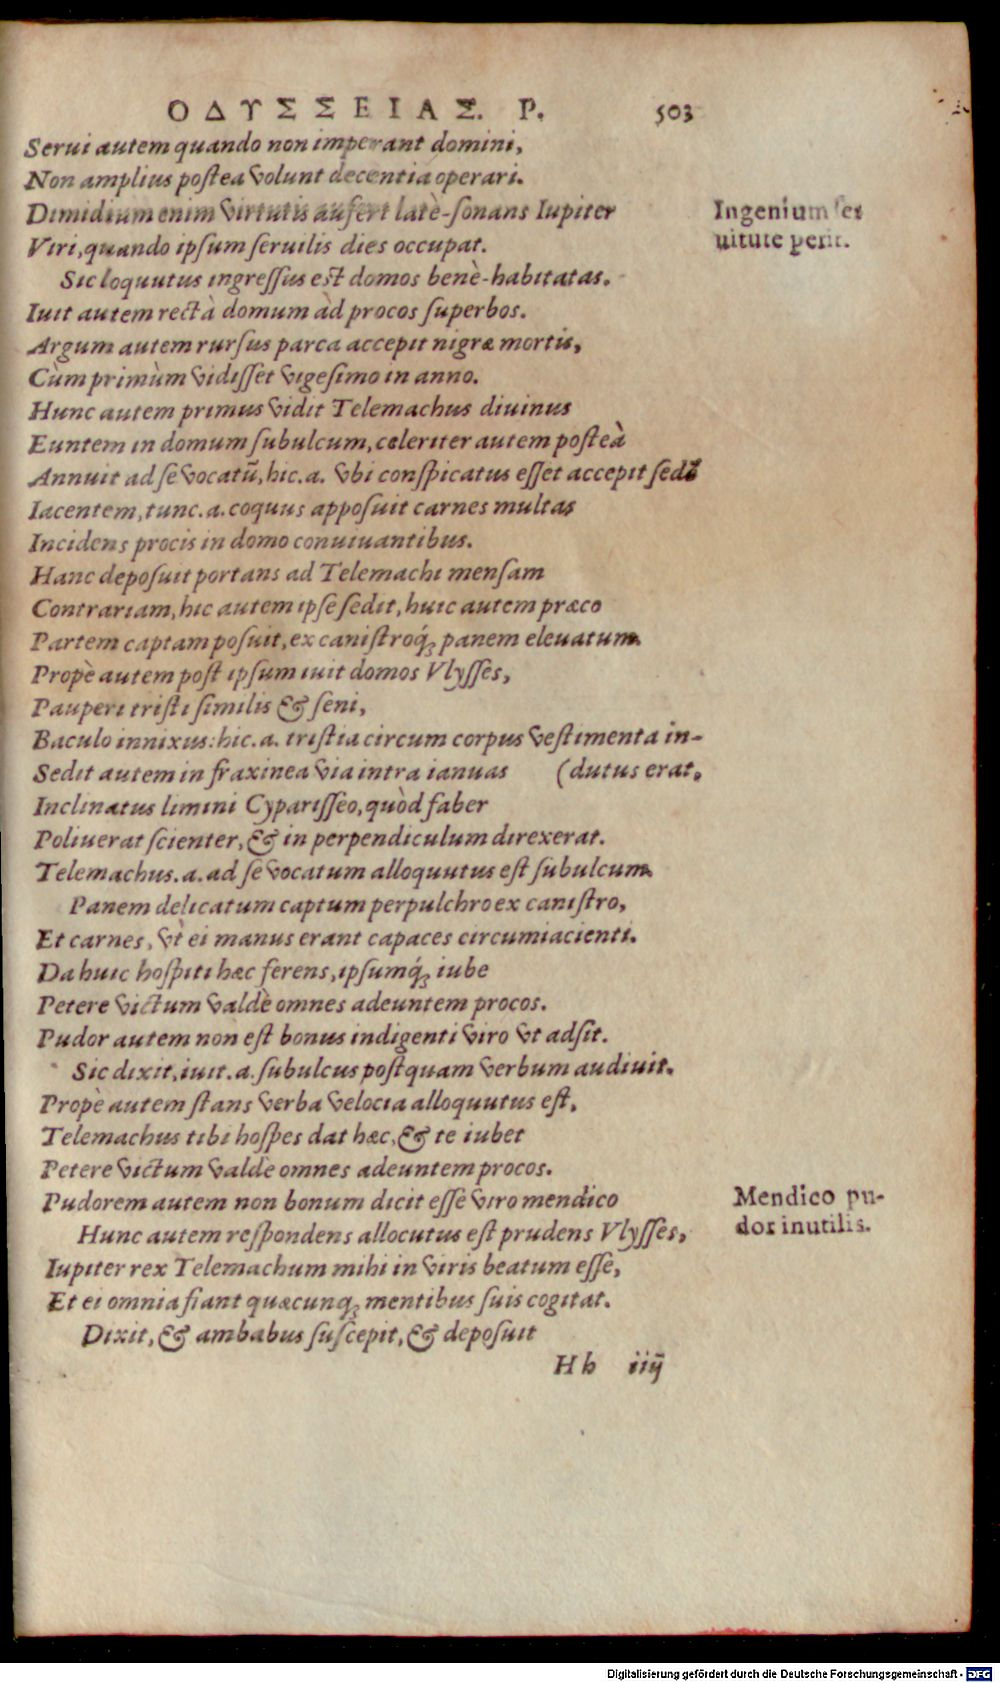 ΟΔΥΣΣΕΙΑΣ. Ρ. 503
Serui autem quando non imperant domini,
Non amplius postea volunt decentia operari.
Dimidium enim virtutis aufert latè-sonans Iupiter
Ingenium ser
Viri, quando ipsum seruilis dies occupat.
uitute perit.
Sic loquutus ingressus est domos benè-habitatas.
Iuit autem rectà domum àd procos superbos.
Argum autem rursus parca accepit nigræ mortis,
Cùm primùm vidisset vigesimo in anno.
Hunc autem primus vidit Telemachus diuinus
Euntem in domum subulcum, celeriter autem posteà
Annuit ad se vocatū, hic. a. vbi conspicatus esset accepit sedē
Iacentem, tunc. a. coquus apposuit carnes multas
Incidens procis in domo conuiuantibus.
Hanc deposuit portans ad Telemachi mensam
Contrariam, hic autem ipse sedit, huic autem præco
Partem captam posuit, ex canistroq́; panem eleuatum.
Propè autem post ipsum iuit domos Vlysses,
Pauperi tristi similis & seni,
Baculo innixus: hic. a. tristia circum corpus vestimenta in-
Sedit autem in fraxinea via intra ianuas (dutus erat.
Inclinatus limini Cyparisseo, quòd faber
Poliuerat scienter, & in perpendiculum direxerat.
Telemachus. a. ad se vocatum alloquutus est subulcum.
Panem delicatum captum perpulchro ex canistro,
Et carnes, vt̀ ei manus erant capaces circumiacienti.
Da huic hospiti hæc ferens, ipsumq́; iube
Petere victum valdè omnes adeuntem procos.
Pudor autem non est bonus indigenti viro vt adsit.
Sic dixit, iuit. a. subulcus postquam verbum audiuit.
Propè autem stans verba velocia alloquutus est,
Telemachus tibi hospes dat hæc, & te iubet
Petere victum valdè omnes adeuntem procos.
Pudorem autem non bonum dicit esse viro mendico
Mendico pu-
dor inutilis.
Hunc autem respondens allocutus est prudens Vlysses,
Iupiter rex Telemachum mihi in viris beatum esse,
Et ei omnia fiant quæcunq; mentibus suis cogitat.
Dixit, & ambabus suscepit, & deposuit
Hh iiij
Digitalisierung gefördert durch die Deutsche Forschungsgemeinschaft - DFG